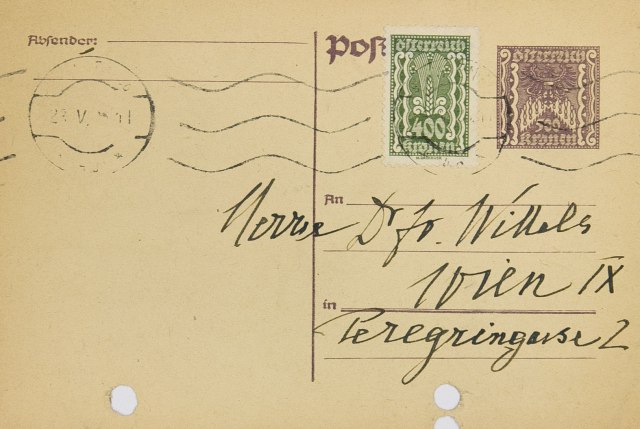 Absender:
Post
österreich
400
kronen
österreich
kronen
23. V.
An
Herrn Dr. Fr. Wittels
Wien IX
in
Peregringasse 2